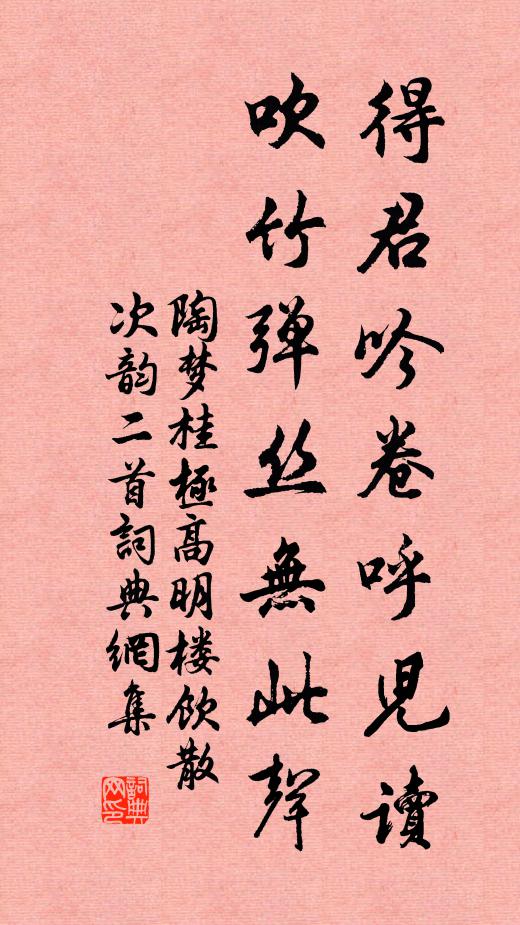 得君吟卷呼児读
吹竹弹丝無此聲
陶梦桂極高明楼饮散
次韵二首詞典網集
詞典
网印